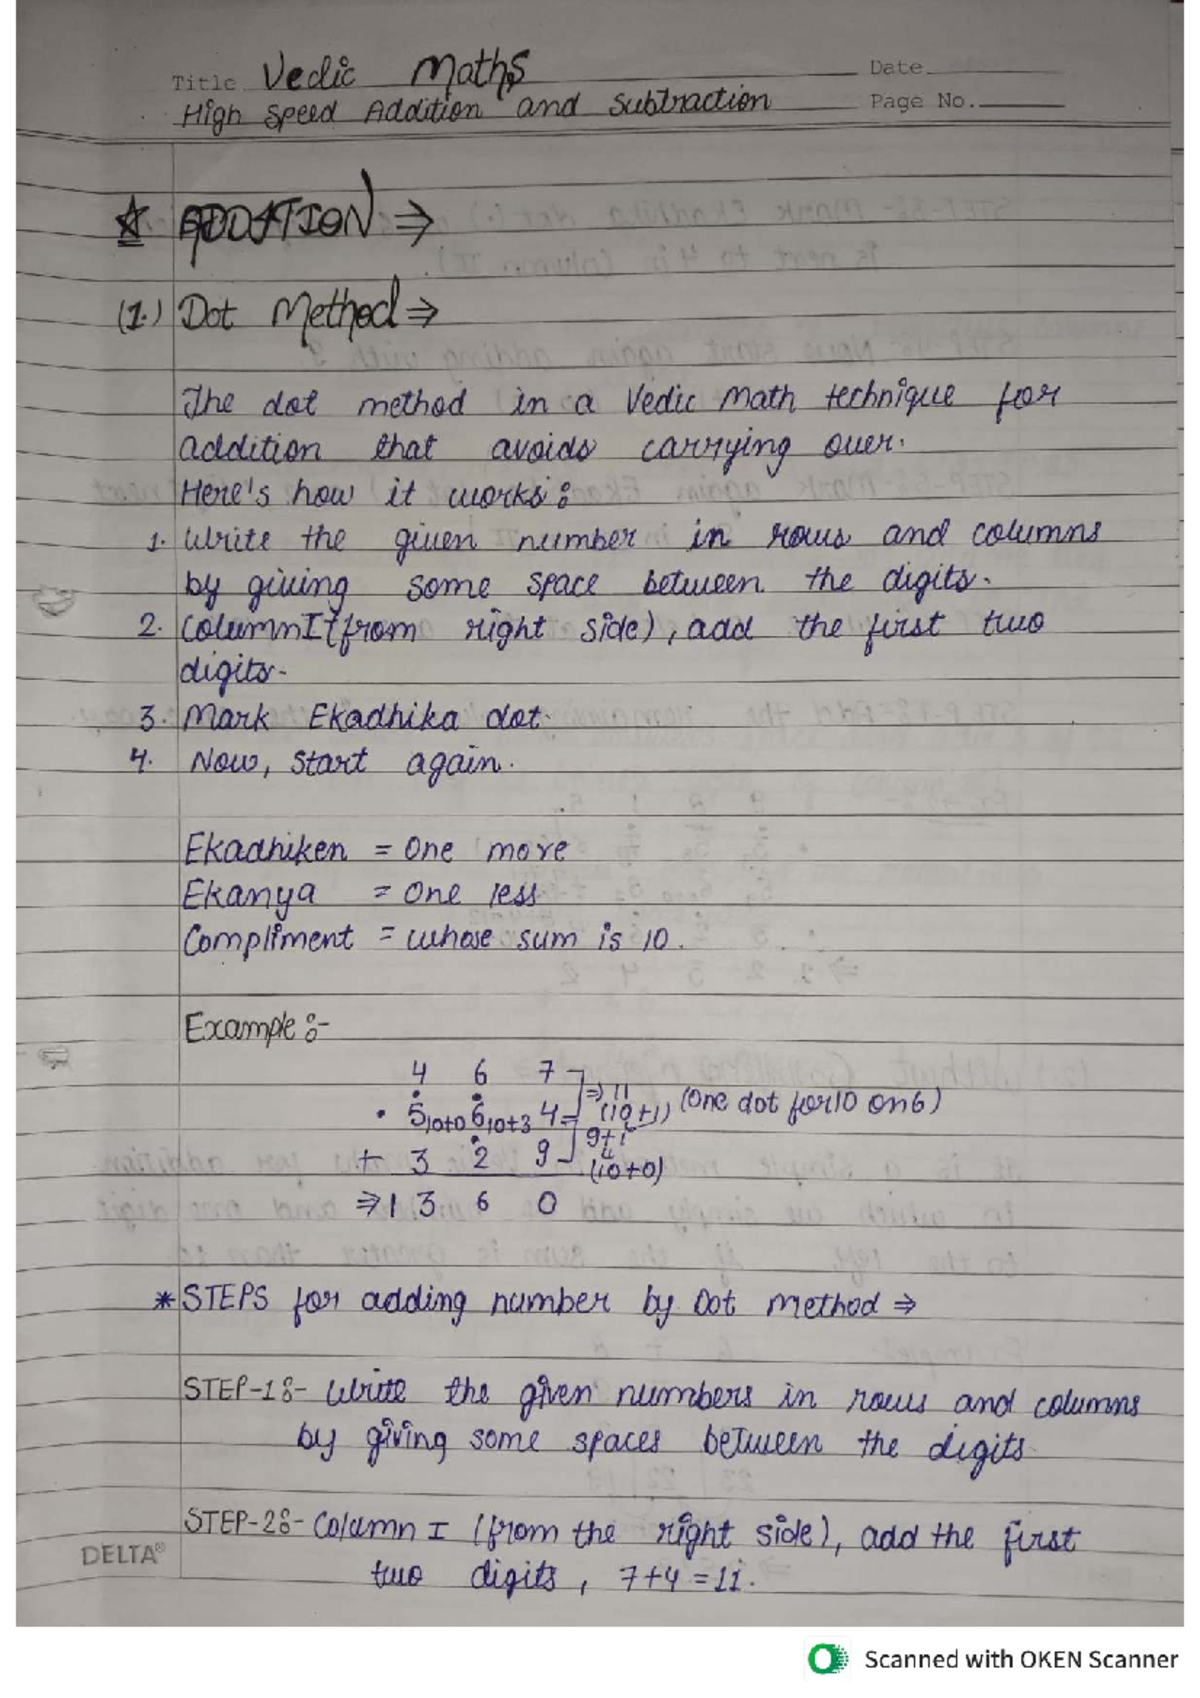 Title Vedic Maths Date
High Speed Addition and Subtraction Page No.
☆ ADDITION ⇒
(1.) Dot Method ⇒
The dot method in a Vedic Math technique for
addition that avoids carrying over.
Here's how it works :
1. Write the given number in rows and columns
by giving some space between the digits.
2. Column I (from right side), add the first two
digits.
3. Mark Ekadhika dot.
4. Now, start again.
Ekadhiken = One more
Ekanya = One less
Compliment = whose sum is 10.
Example :-
4 6 7
⇒ 11
• 5 10+0 6 10+3 4 (10+1) (One dot for 10 on 6)
9+1
+ 3 2 9 (10+0)
⇒ 1 3 6 0
* STEPS for adding number by Dot method ⇒
STEP-1 :- Write the given numbers in rows and columns
by giving some spaces between the digits
STEP-2 :- Column I (from the right side), add the first
two digits, 7+4 = 11.
DELTA®
Scanned with OKEN Scanner